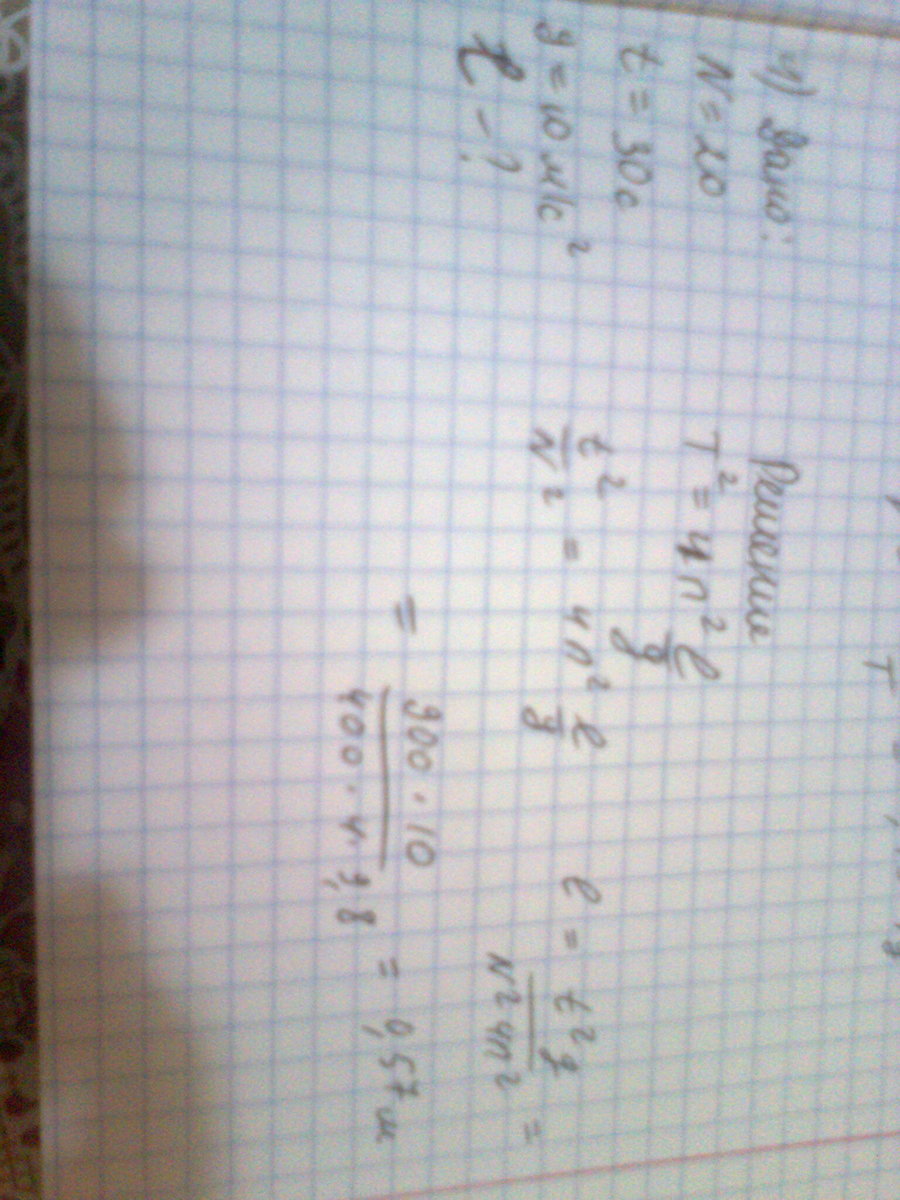 4) Дано:
N = 20
t = 30c
g = 10 м/c²
l - ?
Решение
T² = 4π² l/g
t²/N² = 4π² l/g
l = t²g/N²4π² =
= 900 · 10/400 · 4 · 9,8 = 0,57м